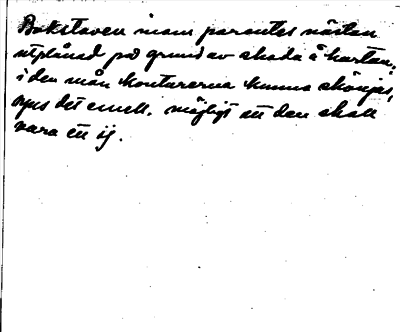 Bokstaven inom parentes nästan
utplånad på grund av skada å kartan;
i den mån konturerna kunna skönjas,
syns det emell. möjligt att den skall
vara ett ij.